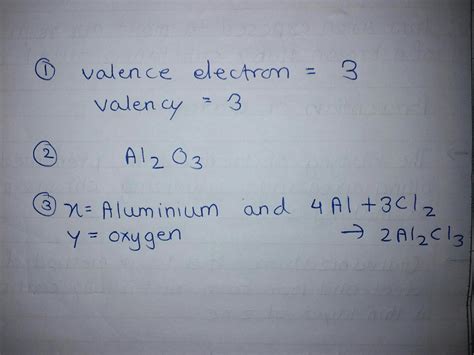 ① valence electron = 3
valency = 3
② Al2O3
③ x = Aluminium and 4Al + 3Cl2
y = oxygen → 2Al2Cl3